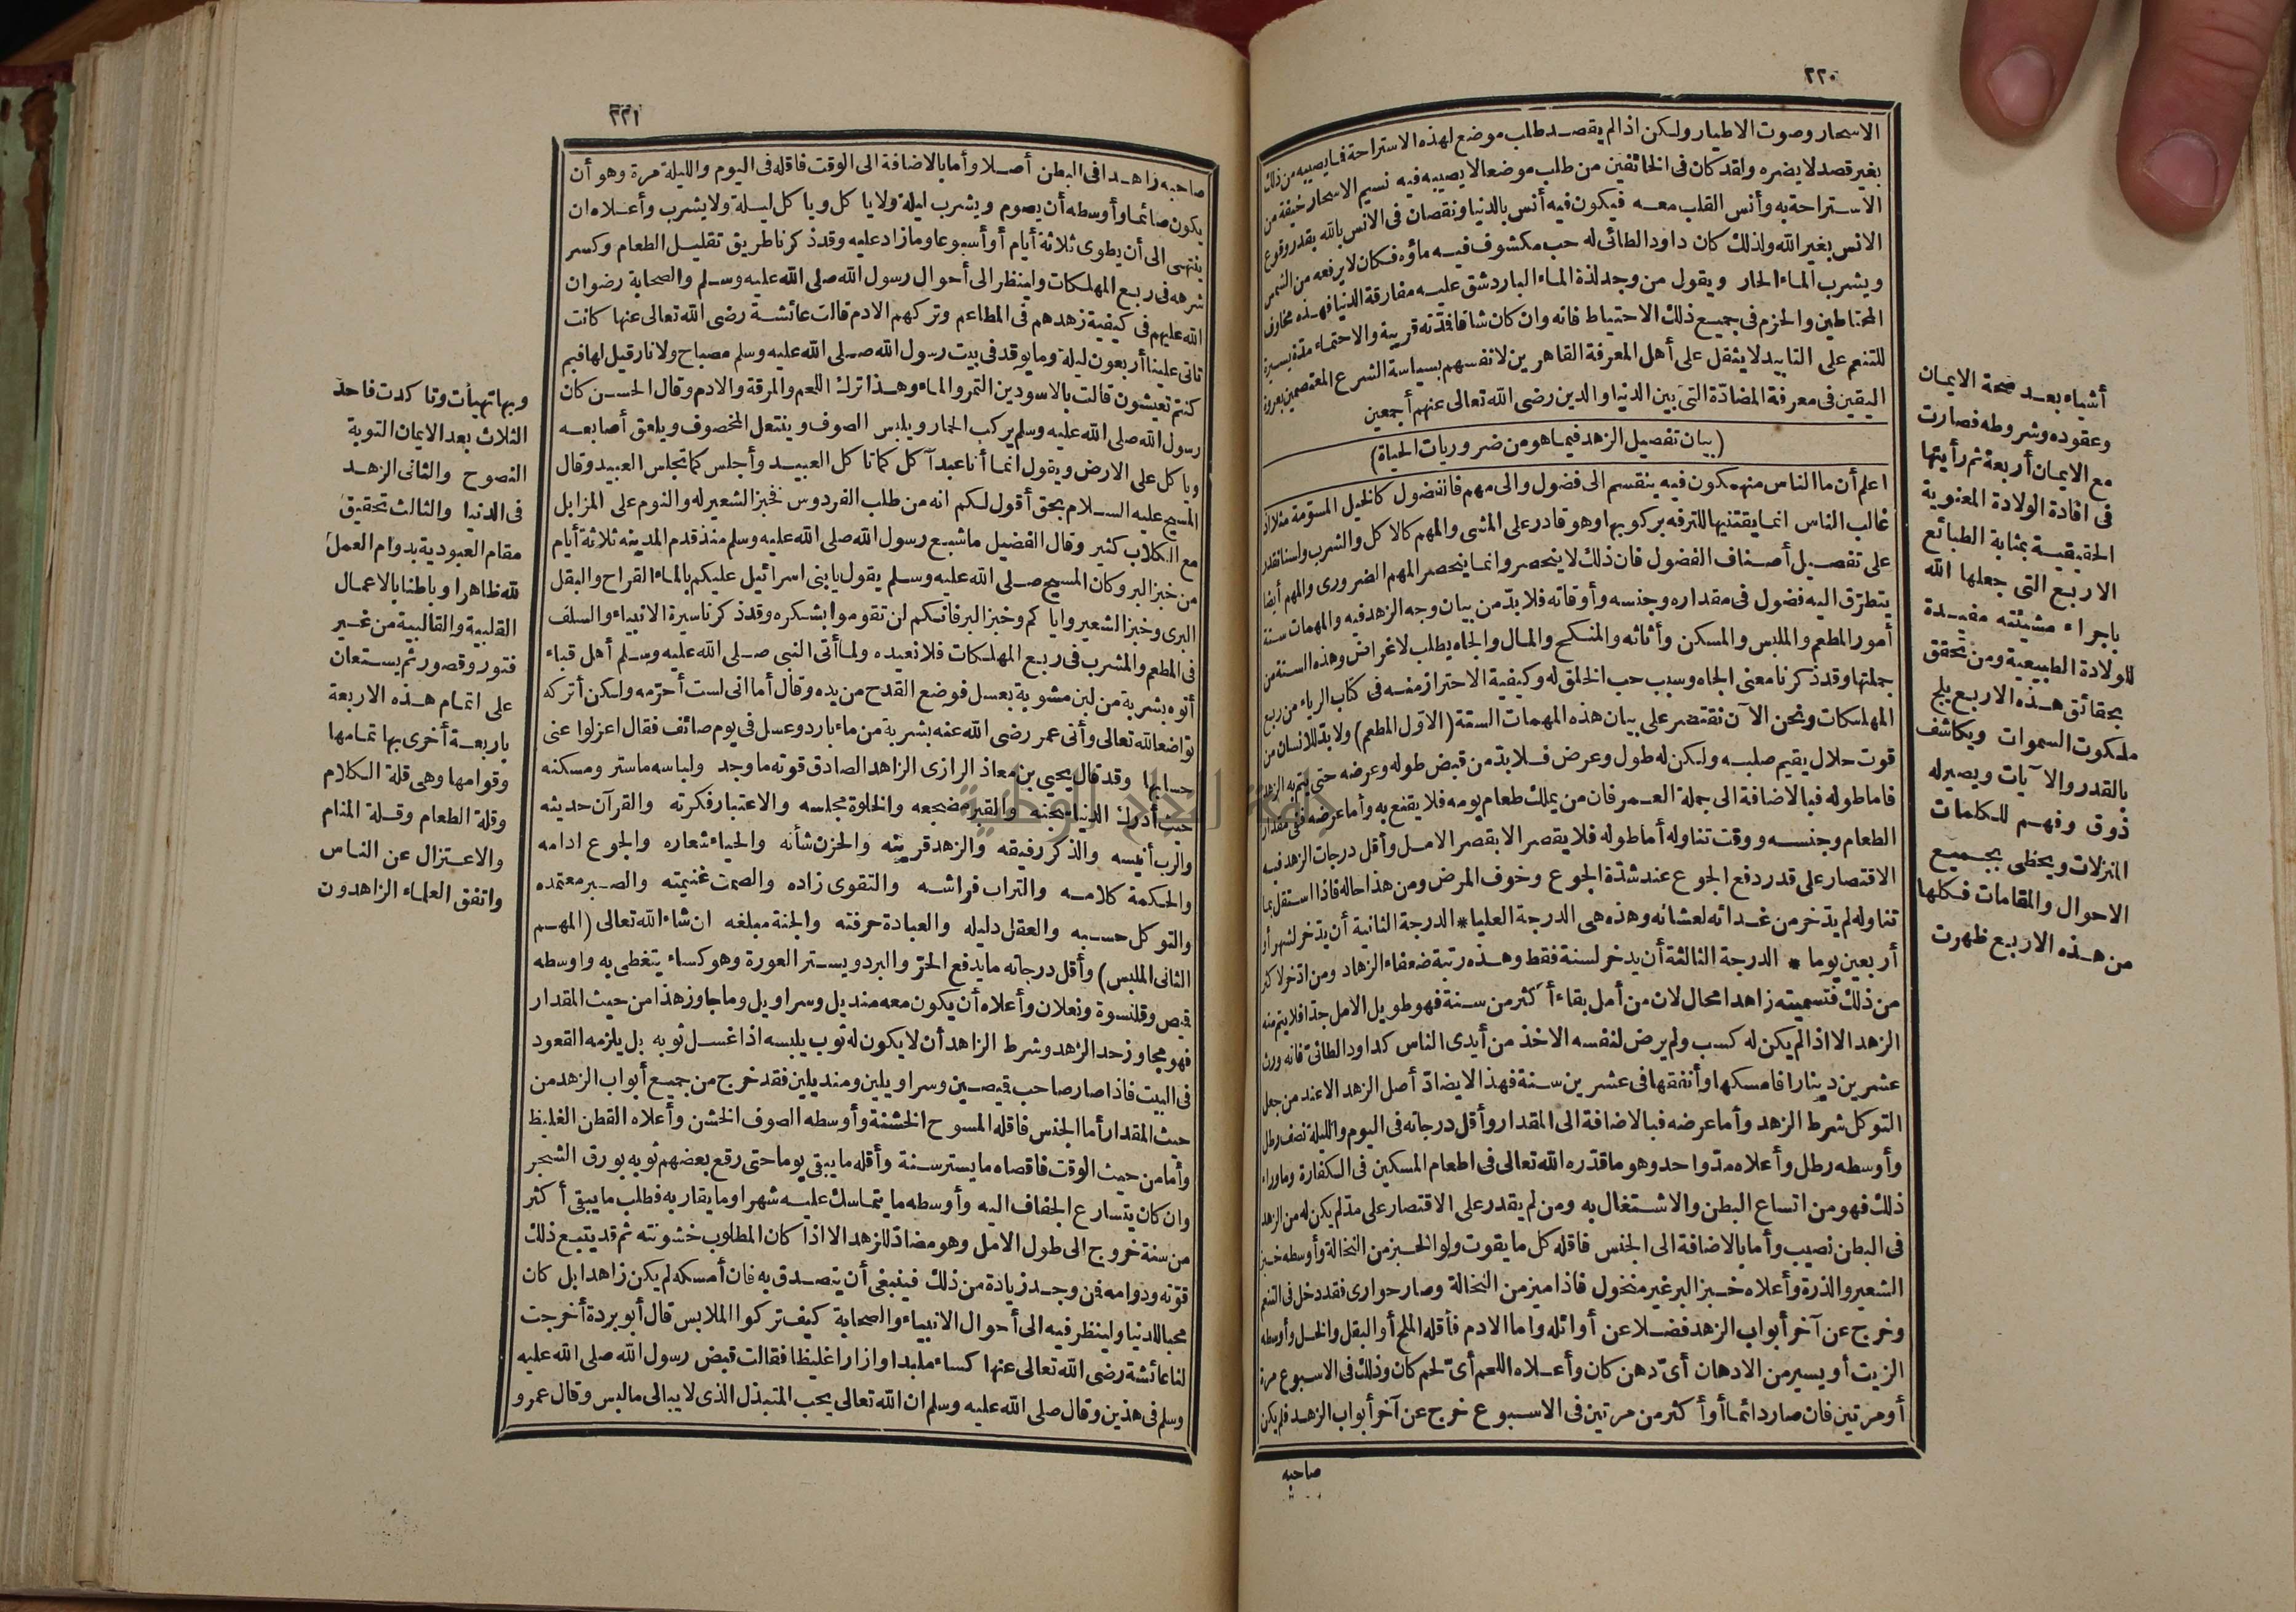 ٢٢٠
الاسحار وصوت الاطيار ولكن اذا لم يقصد طلب موضع لهذه الاستراحة فما يصيبه من ذلك
بغير قصد لا يضره ولقد كان فى الخائفين من طلب موضعا لا يصيبه فيه نسيم الاسحار خيفة من
الاستراحة به وأنس القلب معه فيكون فيه أنس بالدنيا ونقصان فى الانس بالله بقدر وقوع
الانس بغير الله ولذلك كان داود الطائى له حب مكشوف فيه ماؤه فكان لا يرفعه من الشمس
ويشرب الماء الحار ويقول من وجد لذة الماء البارد شق عليه مفارقة الدنيا فهذه مخاوف
المحتاطين والحزم فى جميع ذلك الاحتياط فانه وان كان شاقا فدّته قريبة والاحتماء مدّة يسيرة
للتنعم على التابيد لا يثقل على أهل المعرفة القاهرين لانفسهم بسياسة الشرع المعتصمين بعروة
اليقين فى معرفة المضادّة التى بين الدنيا والدين رضى الله تعالى عنهم أجمعين
(بيان تفصيل الزهد فيما هو من ضروريات الحياة)
اعلم أن ما الناس منهمكون فيه ينقسم الى فضول والى مهم فالفضول كالخيل المسوّمة مثلا اذ
غالب الناس انما يقتنيها للترفه بركوبها وهو قادر على المشى والمهم كالاكل والشرب ولسنا نقدر
على تفصيل أصناف الفضول فان ذلك لا ينحصر وانما ينحصر المهم الضرورى والمهم أيضا
يتطرّق اليه فضول فى مقداره وجنسه وأوقاته فلا بدّ من بيان وجه الزهد فيه والمهمات ستة
أمور المطعم والملبس والمسكن وأثاثه والمنكح والمال والجاه يطلب لاغراض وهذه الستة من
جملتها وقد ذكرنا معنى الجاه وسبب حب الخلق له وكيفية الاحتراز منه فى كتاب الرياء من ربع
المهلكات ونحن الآن نقتصر على بيان هذه المهمات الستة (الاوّل المطعم) ولا بدّ للانسان من
قوت حلال يقيم صلبه ولكن له طول وعرض فلا بدّ من قبض طوله وعرضه حتى يتم به الزهد
فاما طوله فبالاضافة الى جملة العمر فان من يملك طعام يومه فلا يقنع به وأما عرضه ففى مقدار
الطعام وجنسه ووقت تناوله أما طوله فلا يقصر الا بقصر الامل وأقل درجات الزهد فيه
الاقتصار على قدر دفع الجوع عند شدّة الجوع وخوف المرض ومن هذا حاله فاذا استقل بما
تناوله لم يدّخر من غدائه لعشائه وهذه هى الدرجة العليا * الدرجة الثانية أن يدّخر لشهر أو
أربعين يوما * الدرجة الثالثة أن يدخر لسنة فقط وهذه رتبة ضعفاء الزهاد ومن ادّخر لاكثر
من ذلك فتسميته زاهدا محال لان من أمل بقاء أكثر من سنة فهو طويل الامل جدّا فلا يتم منه
الزهد الا اذا لم يكن له كسب ولم يرض لنفسه الاخذ من أيدى الناس كداود الطائى فانه ورث
عشرين دينارا فامسكها وأنفقها فى عشرين سنة فهذا لا يضادّ أصل الزهد الا عند من جعل
التوكل شرط الزهد وأما عرضه فبالاضافة الى المقدار وأقل درجاته فى اليوم والليلة نصف رطل
وأوسطه رطل وأعلاه مدّ واحد وهو ما قدّره الله تعالى فى اطعام المسكين فى الكفارة وما وراء
ذلك فهو من اتساع البطن والاشتغال به ومن لم يقدر على الاقتصار على مدّ لم يكن له من الزهد
فى البطن نصيب وأما بالاضافة الى الجنس فاقله كل ما يقوت ولو الخبز من النخالة وأوسطه خبز
الشعير والذرة وأعلاه خبز البر غير منخول فاذا ميز من النخالة وصار حوارى فقد دخل فى التنعم
وخرج عن آخر أبواب الزهد فضلا عن أوائله واما الادم فأقله الملح أو البقل والخل وأوسطه
الزيت أو يسير من الادهان أىّ دهن كان وأعلاه اللحم أىّ لحم كان وذلك فى الاسبوع مرة
أو مرتين فان صار دائما أو أكثر من مرتين فى الاسبوع خرج عن آخر أبواب الزهد فلم يكن
صاحبه
أشياء بعد صحة الايمان
وعقوده وشروطه فصارت
مع الايمان أربعة ثم رأيتها
فى افادة الولادة المعنوية
الحقيقية بمثابة الطبائع
الاربع التى جعلها الله
باجراء مشيئته مفيدة
للولادة الطبيعية ومن تحقق
بحقائق هذه الاربع يلج
ملكوت السموات ويكاشف
بالقدر والآيات ويصير له
ذوق وفهم للكلمات
المنزلات ويحظى بجميع
الاحوال والمقامات فكلها
من هذه الاربع ظهرت
٢٢١
صاحبه زاهدا فى البطن أصلا وأما بالاضافة الى الوقت فاقله فى اليوم والليلة مرة وهو أن
يكون صائما وأوسطه أن يصوم ويشرب ليلة ولا يا كل ويا كل ليلة ولا يشرب وأعلاه ان
ينتهى الى أن يطوى ثلاثة أيام أو أسبوعا وما زاد عليه وقد ذكرنا طريق تقليل الطعام وكسر
شرهه فى ربع المهلكات ولينظر الى أحوال رسول الله صلى الله عليه وسلم والصحابة رضوان
الله عليهم فى كيفية زهدهم فى المطاعم وتركهم الادم قالت عائشة رضى الله تعالى عنها كانت
تاتى علينا أربعون ليلة وما يوقد فى بيت رسول الله صلى الله عليه وسلم مصباح ولا نار قيل لها فبم
كنتم تعيشون قالت بالاسودين التمر والماء وهذا ترك اللحم والمرقة والادم وقال الحسن كان
رسول الله صلى الله عليه وسلم يركب الحمار ويلبس الصوف وينتعل المخصوف ويلعق أصابعه
ويا كل على الارض ويقول انما أنا عبد آكل كما تا كل العبيد وأجلس كما تجلس العبيد وقال
المسيح عليه السلام بحق أقول لكم انه من طلب الفردوس فخبز الشعير له والنوم على المزابل
مع الكلاب كثير وقال الفضيل ما شبع رسول الله صلى الله عليه وسلم منذ قدم المدينه ثلاثة أيام
من خبز البر وكان المسيح صلى الله عليه وسلم يقول يا بنى اسرائيل عليكم بالماء القراح والبقل
البرى وخبز الشعير وايا كم وخبز البر فانكم لن تقوموا بشكره وقد ذكرنا سيرة الانبياء والسلف
فى المطعم والمشرب فى ربع المهلكات فلا نعيده ولما أتى النبى صلى الله عليه وسلم أهل قباء
أتوه بشربة من لبن مشوبة بعسل فوضع القدح من يده وقال أما انى لست أحرّمه ولكن أتركه
تواضعا لله تعالى وأتى عمر رضى الله عنه بشربة من ماء بارد وعسل فى يوم صائف فقال اعزلوا عنى
حسابها وقد قال يحيى بن معاذ الرازى الزاهد الصادق قوته ما وجد ولباسه ما ستر ومسكنه
حيث أدرك الدنيا سجنه والقبر مضجعه والخلوة مجلسه والاعتبار فكرته والقرآن حديثه
والرب أنيسه والذكر رفيقه والزهد قرينه والحزن شأنه والحياء شعاره والجوع ادامه
والحكمة كلامه والتراب فراشه والتقوى زاده والصمت غنيمته والصبر معتمده
والتوكل حسبه والعقل دليله والعبادة حرفته والجنة مبلغه ان شاء الله تعالى (المهم
الثانى الملبس) وأقل درجاته ما يدفع الحرّ والبرد ويستر العورة وهو كساء يتغطى به واوسطه
قيص وقلنسوة ونعلان وأعلاه أن يكون معه منديل وسراويل وما جاوز هذا من حيث المقدار
فهو مجاوز حد الزهد وشرط الزاهد أن لا يكون له ثوب يلبسه اذا غسل ثوبه بل يلزمه القعود
فى البيت فاذا صار صاحب قيصين وسراويلين ومنديلين فقد خرج من جميع أبواب الزهد من
حيث المقدار أما الجنس فاقله المسوح الخشنة وأوسطه الصوف الخشن وأعلاه القطن الغليظ
وأما من حيث الوقت فاقصاه ما يستر سنة وأقله ما يبقى يوما حتى رقع بعضهم ثوبه بورق الشجر
وان كان يتسارع الجفاف اليه وأوسطه ما يتماسك عليه شهرا وما يقاربه فطلب ما يبقى أكثر
من سنة خروج الى طول الامل وهو مضادّ للزهد الا اذا كان المطلوب خشونته ثم قد يتبع ذلك
قوّته ودوامه فن وجد زيادة من ذلك فينبغى أن يتصدق به فان أمسكه لم يكن زاهدا بل كان
محبا للدنيا ولينظر فيه الى أحوال الانبياء والصحابة كيف تركوا الملابس قال أبو بردة أخرجت
لنا عائشة رضى الله تعالى عنها كساء ملبدا وازارا غليظا فقالت قبض رسول الله صلى الله عليه
وسلم فى هذين وقال صلى الله عليه وسلم ان الله تعالى يحب المتبذل الذى لا يبالى ما لبس وقال عمرو
وبها تهيأت وتا كدت فاحد
الثلاث بعد الايمان التوبة
النصوح والثانى الزهد
فى الدنيا والثالث تحقيق
مقام العبودية بدوام العمل
لله ظاهرا وباطنا بالاعمال
القلبية والقالبية من غير
فتور وقصور ثم يستعان
على اتمام هذه الاربعة
باربعة أخرى بها تمامها
وقوامها وهى قلة الكلام
وقلة الطعام وقلة المنام
والاعتزال عن الناس
واتفق العلماء الزاهدون